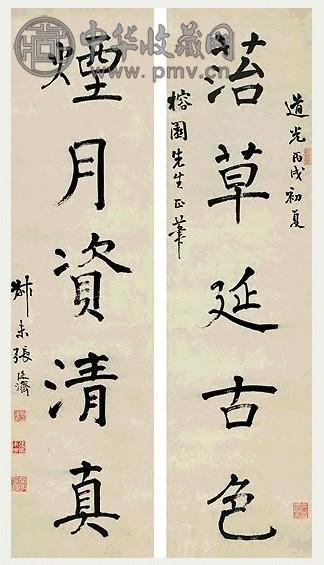 中华收藏网
www.pmv.cn
道光丙戌初夏
菭草延古色
榕園先生正筆
煙月資清真
叔未張廷濟